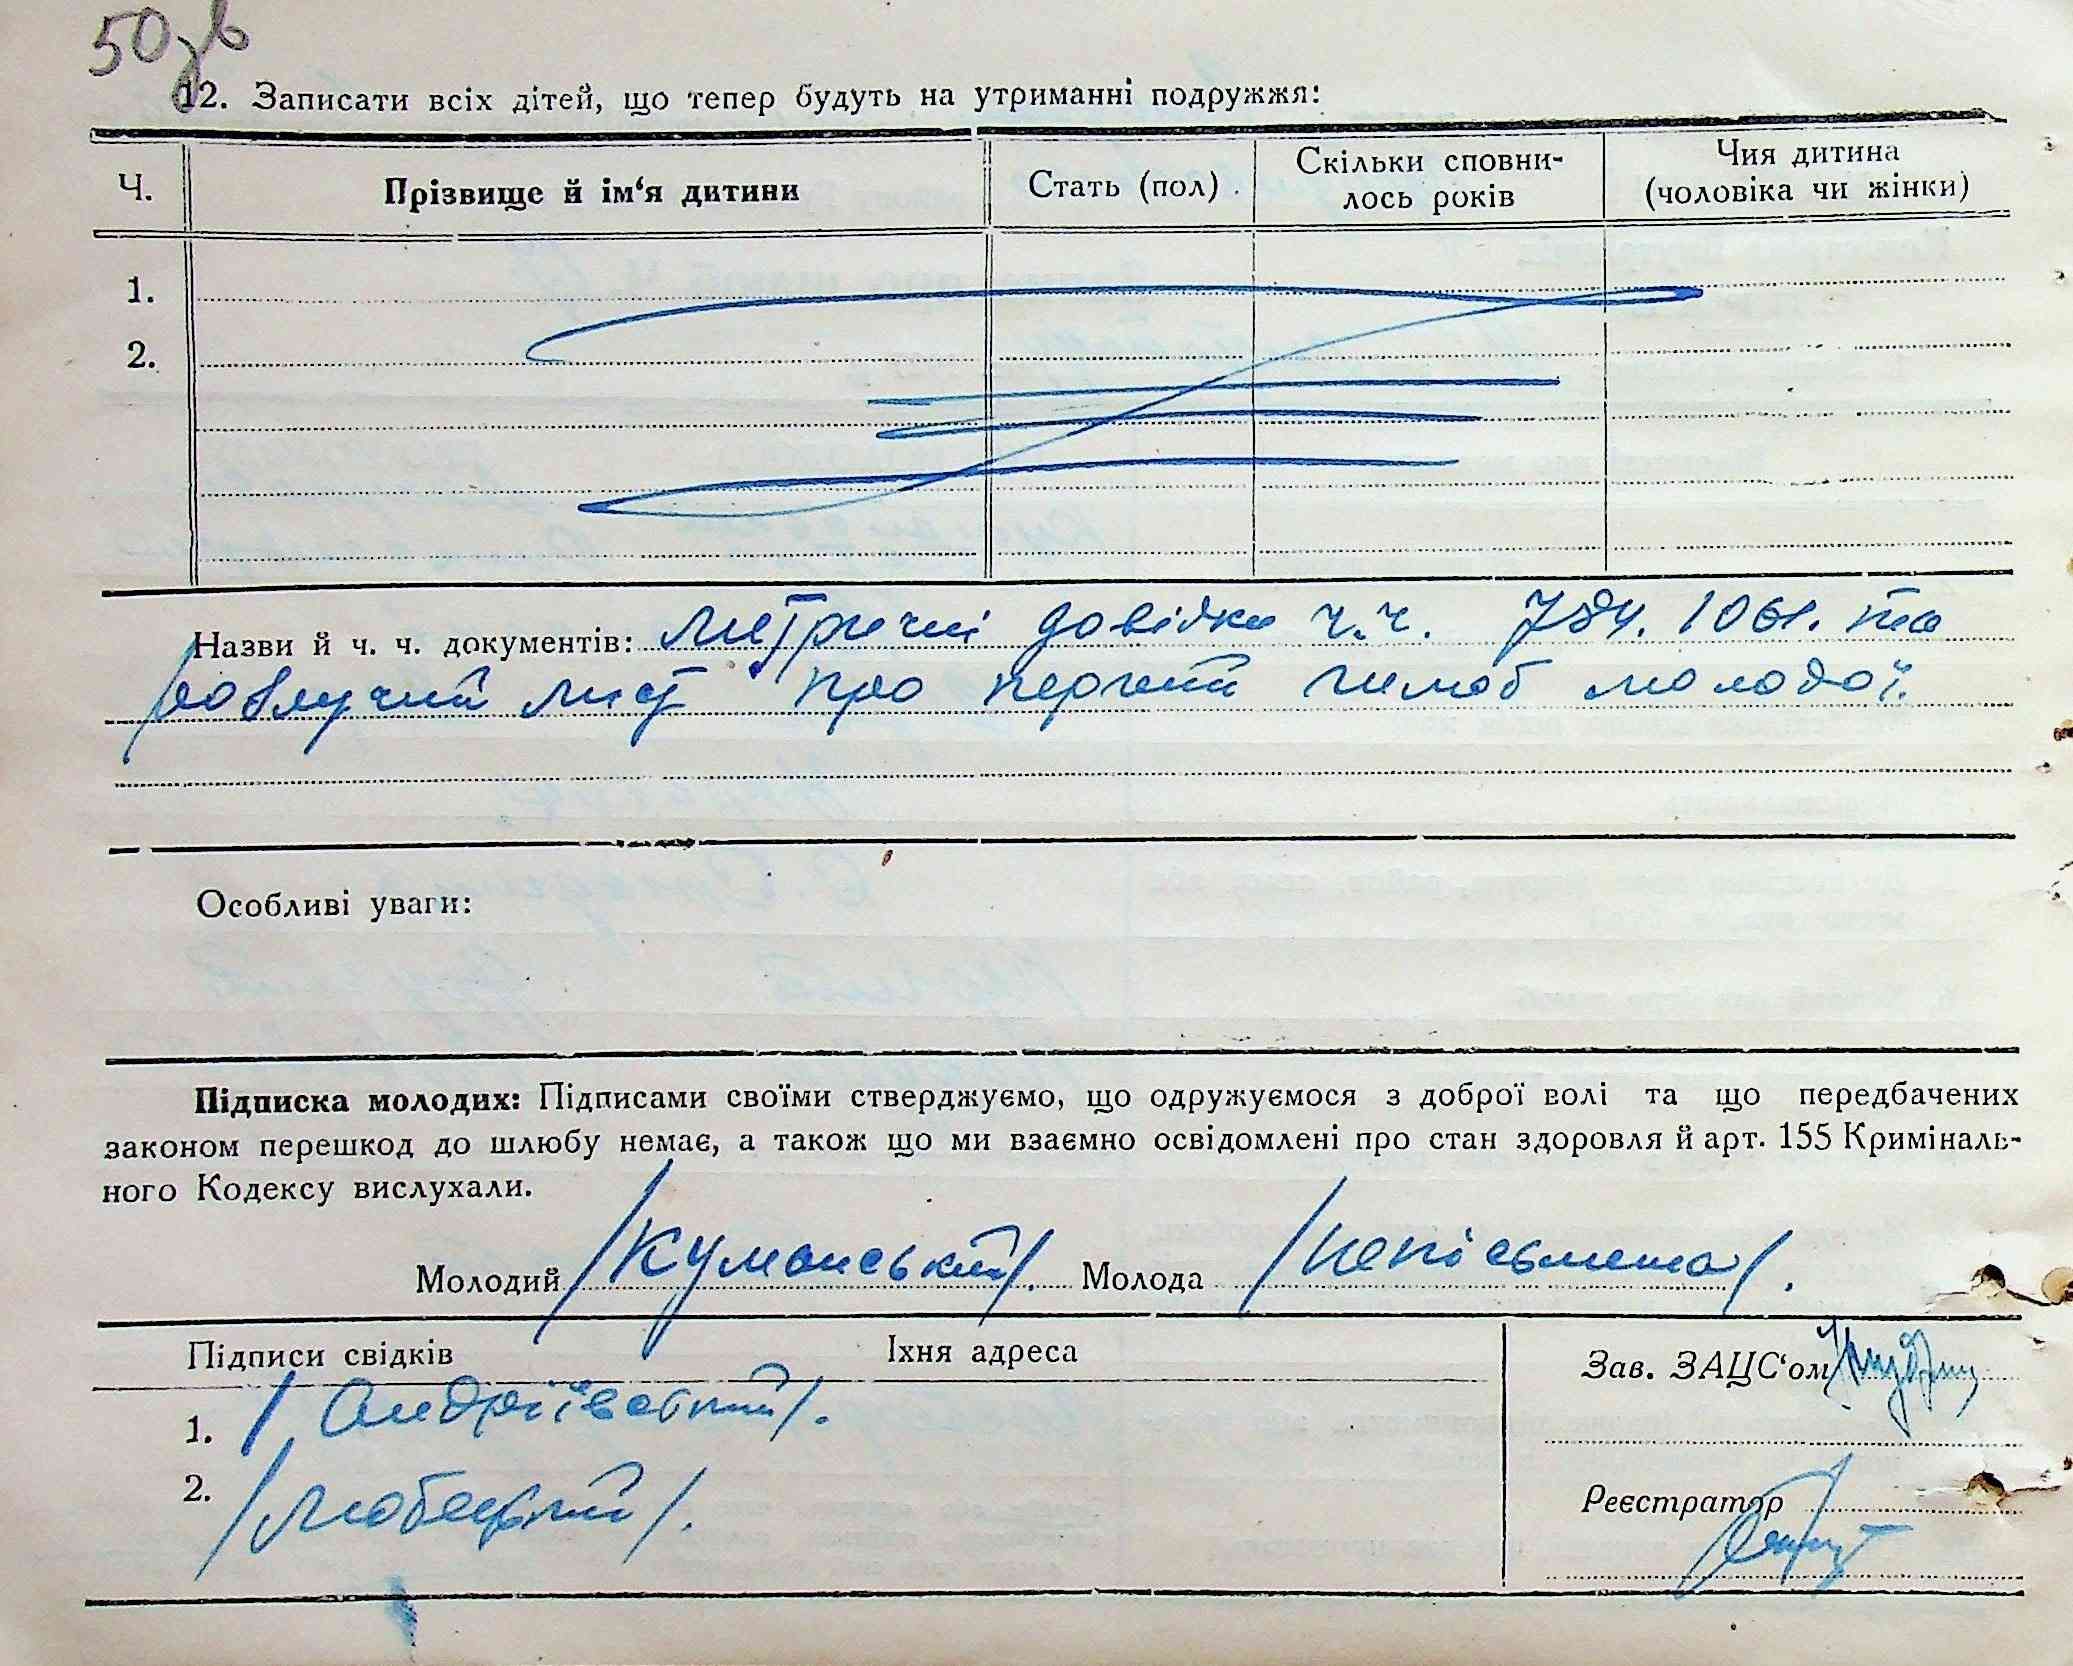 50зв
12. Записати всіх дітей, що тепер будуть на утриманні подружжя:
Ч. Прізвище й ім‘я дитини Стать (пол) Скільки сповни-лось років Чия дитина (чоловіка чи жінки)
1.
2.
Назви й ч. ч. документів: метричні довідки ч.ч. 784. 1061. та
розлучий лист про перший шлюб молодої.
Особливі уваги:
Підписка молодих: Підписами своїми стверджуємо, що одружуємося з доброї волі та що передбачених
законом перешкод до шлюбу немає, а також що ми взаємно освідомлені про стан здоровля й арт. 155 Криміналь-
ного Кодексу вислухали.
Молодий /Куманський/. Молода /неписьмена/.
Підписи свідків Їхня адреса Зав. ЗАЦС‘ом
1. /Андріївський/.
2. /Любецький/.
Реєстратор